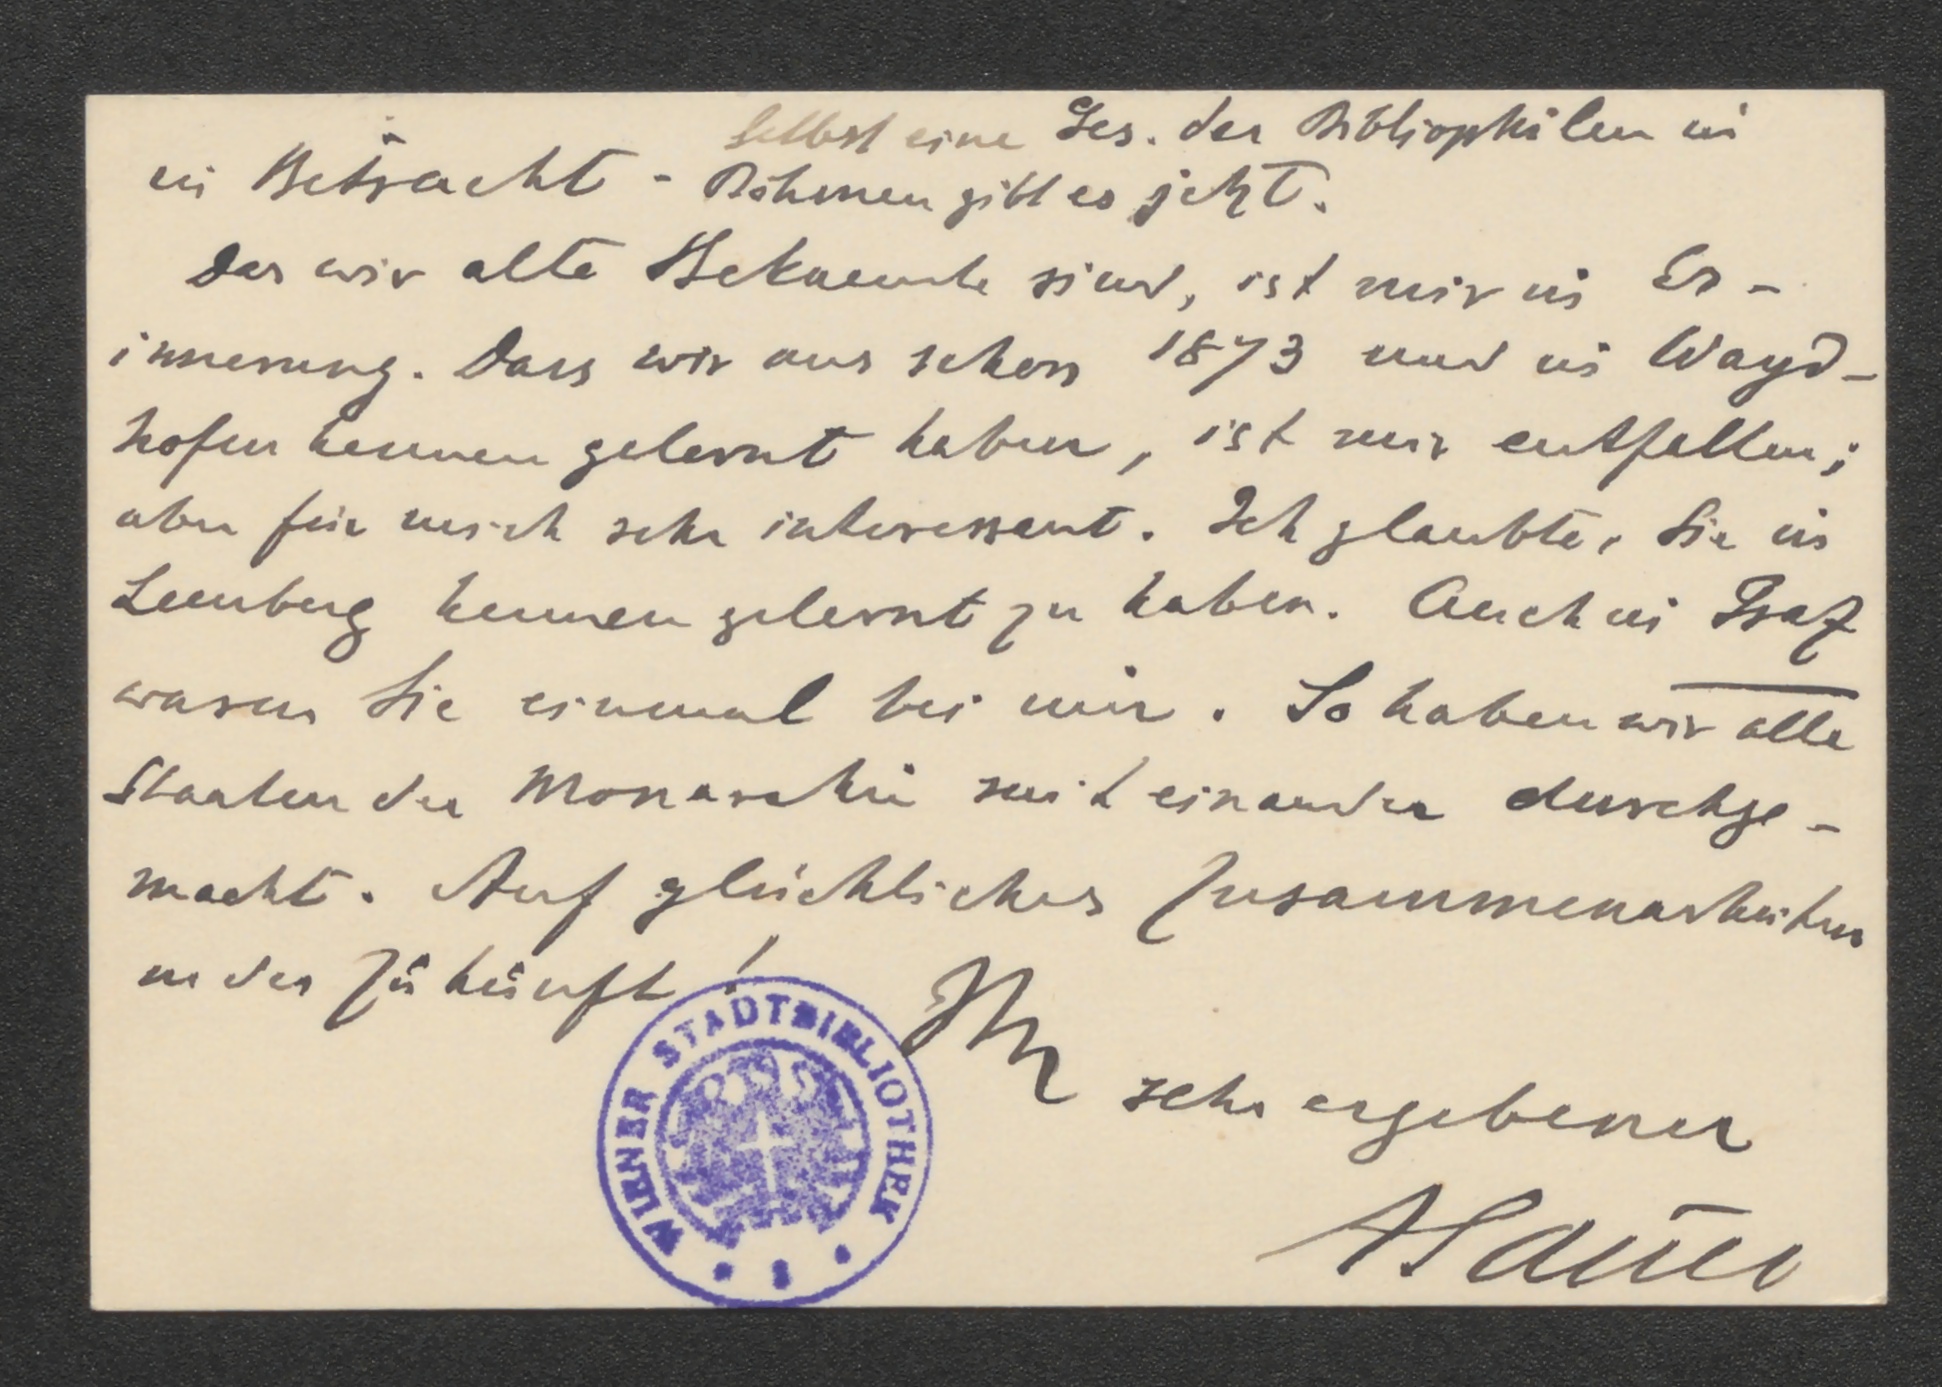 Selbst eine Ges. der Bibliophilen in
in Betracht - Böhmen gibt es jetzt.
Das wir alte Bekannte sind, ist mir in Er-
innerung. Dass wir uns schon 1873 und in Wayd-
hofen kennen gelernt haben, ist mir entfallen;
aber für mich sehr interessant. Ich glaubte, Sie in
Lemberg kennen gelernt zu haben. Auch in Graz
waren Sie einmal bei mir. So haben wir alle
Staaten der Monarchie mit einander durchge-
macht. Auf glückliches Zusammenarbeiten
in der Zukunft!
Ihr
sehr ergebener
ASauer
WIENER STADTBIBLIOTHEK